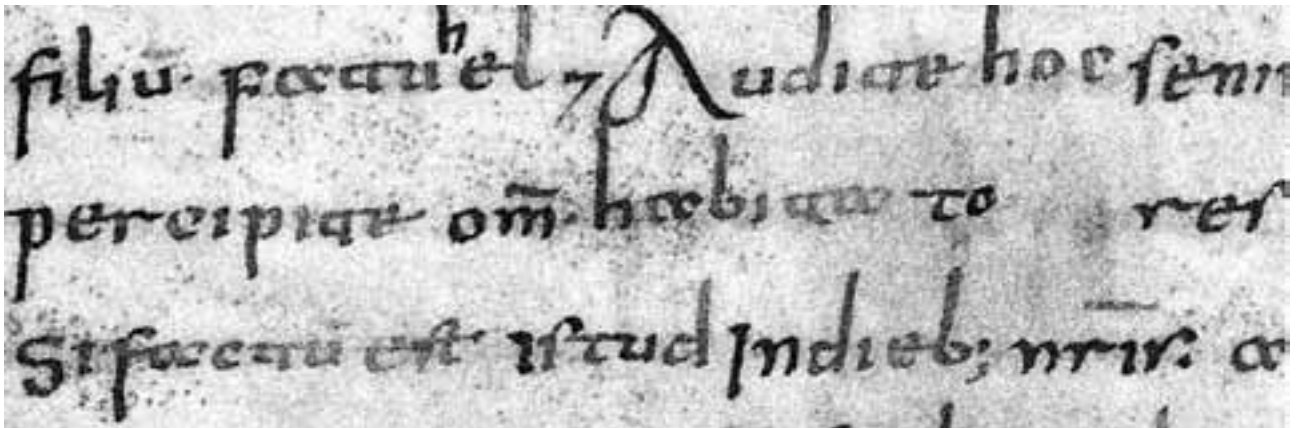 filiū· fatuhel ⁊ Audite hoc sen
percipite om̅· habita to res
Si factū est istud Indieb; nr̅is· a